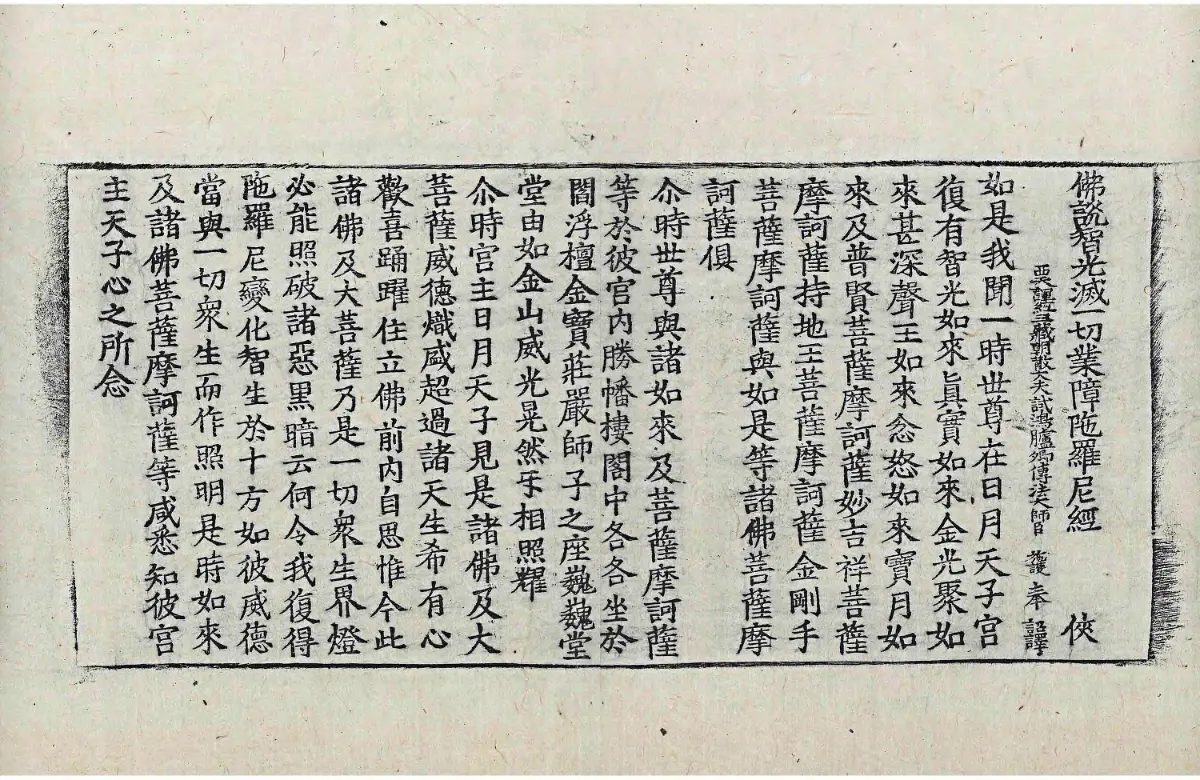 佛說智光滅一切業障陁羅尼經 俠
譯經三藏朝散大夫試鴻臚卿傳法大師臣 護 奉 詔譯
如是我聞一時世尊在日月天子宮
復有智光如來真實如來金光聚如
來甚深聲王如來念怒如來寶月如
來及普賢菩薩摩訶薩妙吉祥菩薩
摩訶薩持地王菩薩摩訶薩金剛手
菩薩摩訶薩與如是等諸佛菩薩摩
訶薩俱
尒時世尊與諸如來及菩薩摩訶薩
等於彼宮內勝幡樓閣中各各坐於
閻浮檀金寶莊嚴師子之座巍巍堂
堂由如金山威光晃然㸦相照耀
尒時宮主日月天子見是諸佛及大
菩薩威德熾盛超過諸天生希有心
歡喜踊躍住立佛前內自思惟今此
諸佛及大菩薩乃是一切衆生界燈
必能照破諸惡黑暗云何令我復得
陁羅尼變化智生於十方如彼威德
當與一切衆生而作照明是時如來
及諸佛菩薩摩訶薩等咸悉知彼宮
主天子心之所念